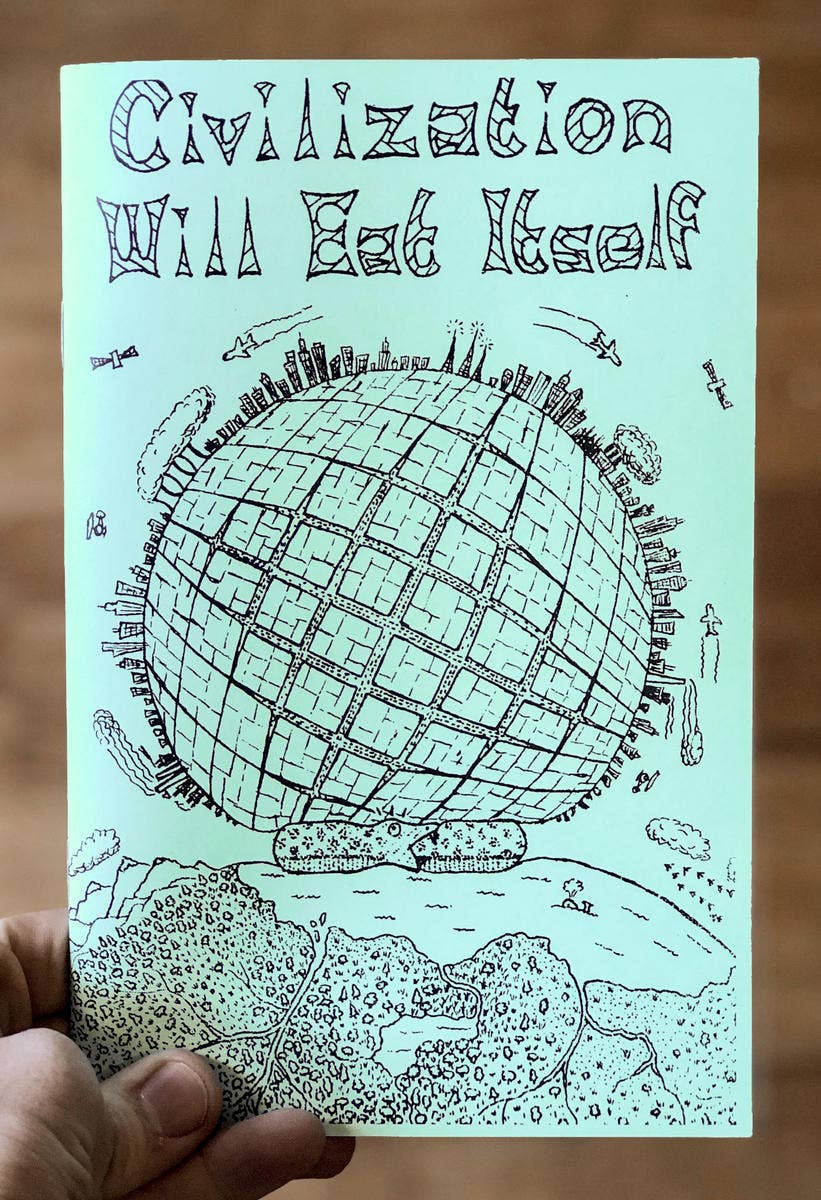 Civilization
Will Eat Itself